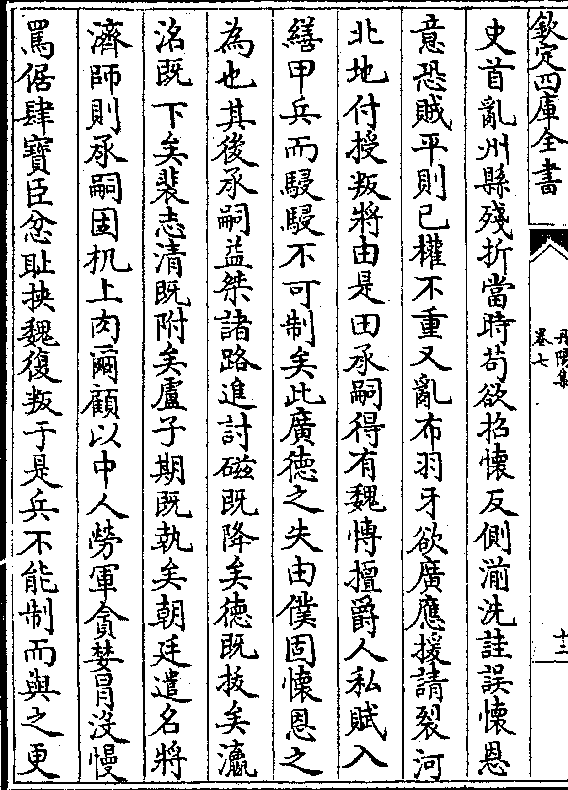 欽定四庫全書
丹陽集
卷七
十三
史首亂州縣殘折當時苟欲招懷反側湔洗詿誤懷恩
意恐賊平則已權不重又亂布羽牙欲廣應援請裂河
北地付授叛將由是田承嗣得有魏博擅爵人私賦入
繕甲兵而駸駸不可制矣此廣德之失由僕固懷恩之
為也其後承嗣益桀諸路進討磁既降矣德既拔矣瀛
洺既下矣裴志清既附矣盧子期既執矣朝廷遣名將
濟師則承嗣固机上肉爾顧以中人勞軍貪婪冒沒慢
罵倨肆寶臣忿恥挾魏復叛于是兵不能制而與之更